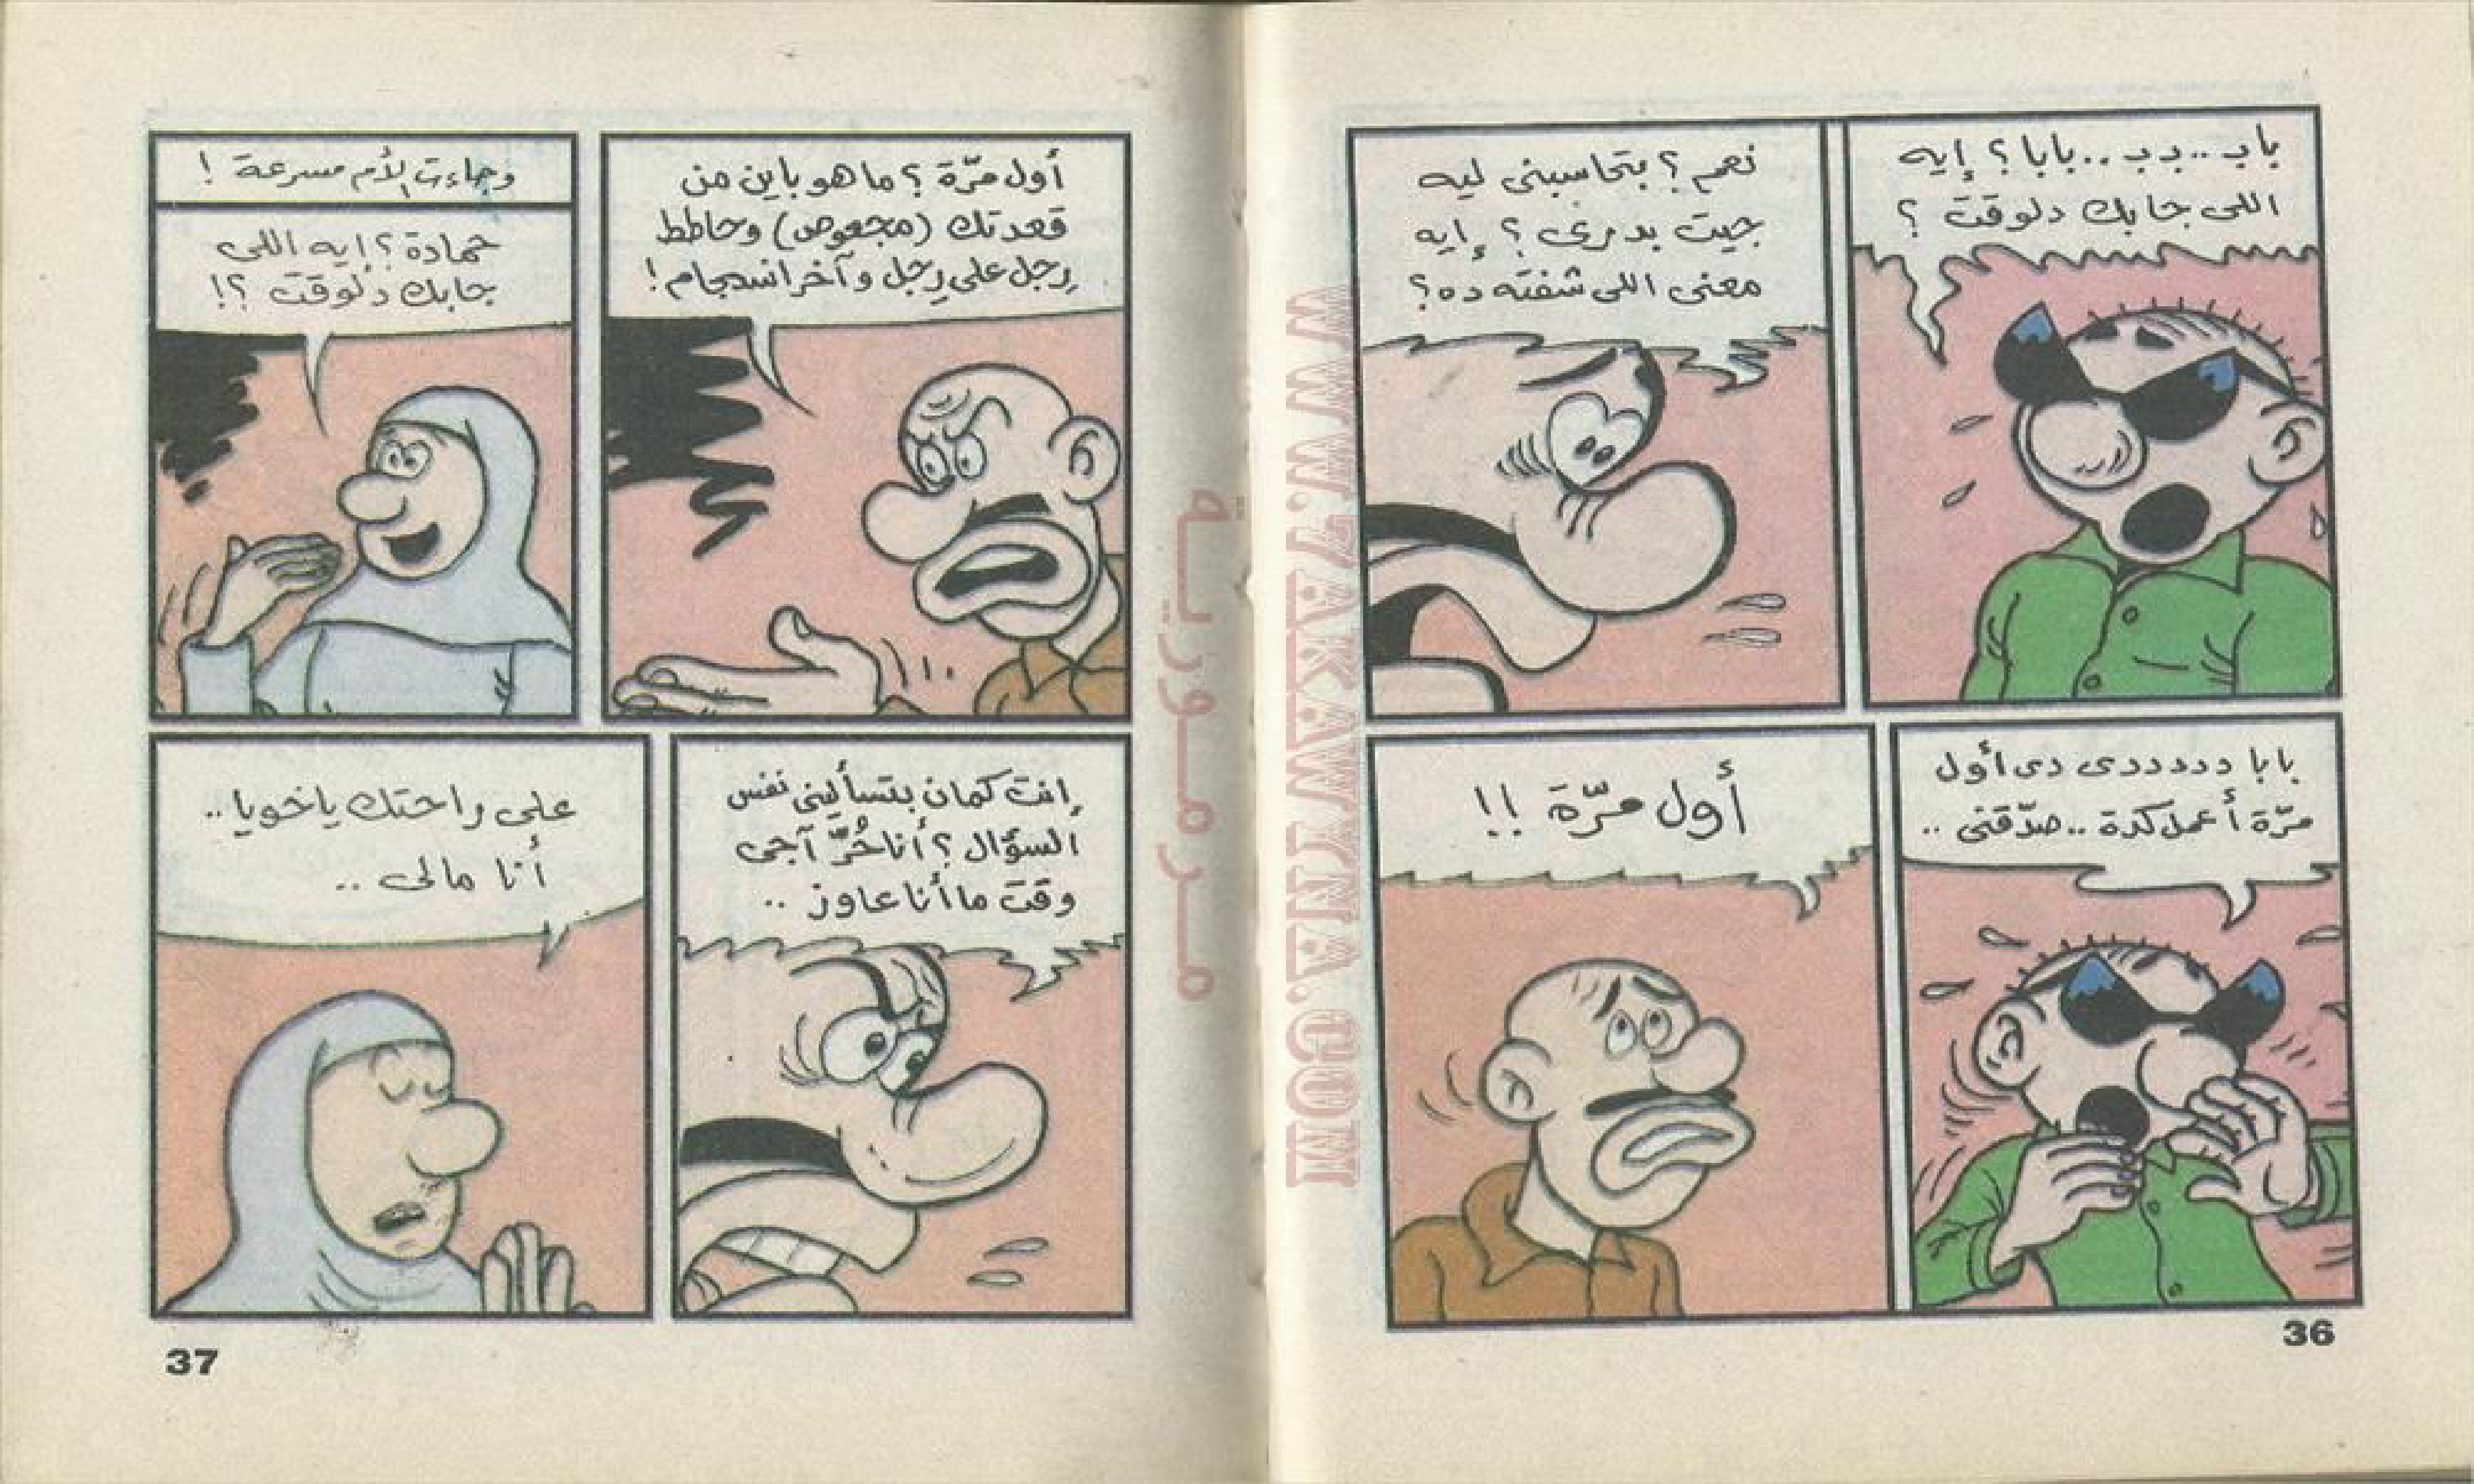 باب..بب..بابا؟ إيه
اللى جابك دلوقت؟
نعم؟ بتحاسبنى ليه
جيت بدرى؟ إيه
معنى اللى شفته ده؟
بابا ددددى دى أول
مرّة أعمل كدة.. صدّقنى..
أول مرّة!!
36
أول مرّة؟ ما هو باين من
قعدتك (مجعوص) وحاطط
رِجل على رِجل وآخر انسجام!
وجاءت الأم مسرعة!
حمادة؟ إيه اللى
جابك دلوقت؟!
إنت كمان بتسألينى نفس
السؤال؟ أنا حُرّ آجى
وقت ما أنا عاوز..
على راحتك ياخويا..
أنا مالى..
37
مرمورية
WWW.7AKAWEENA.COM